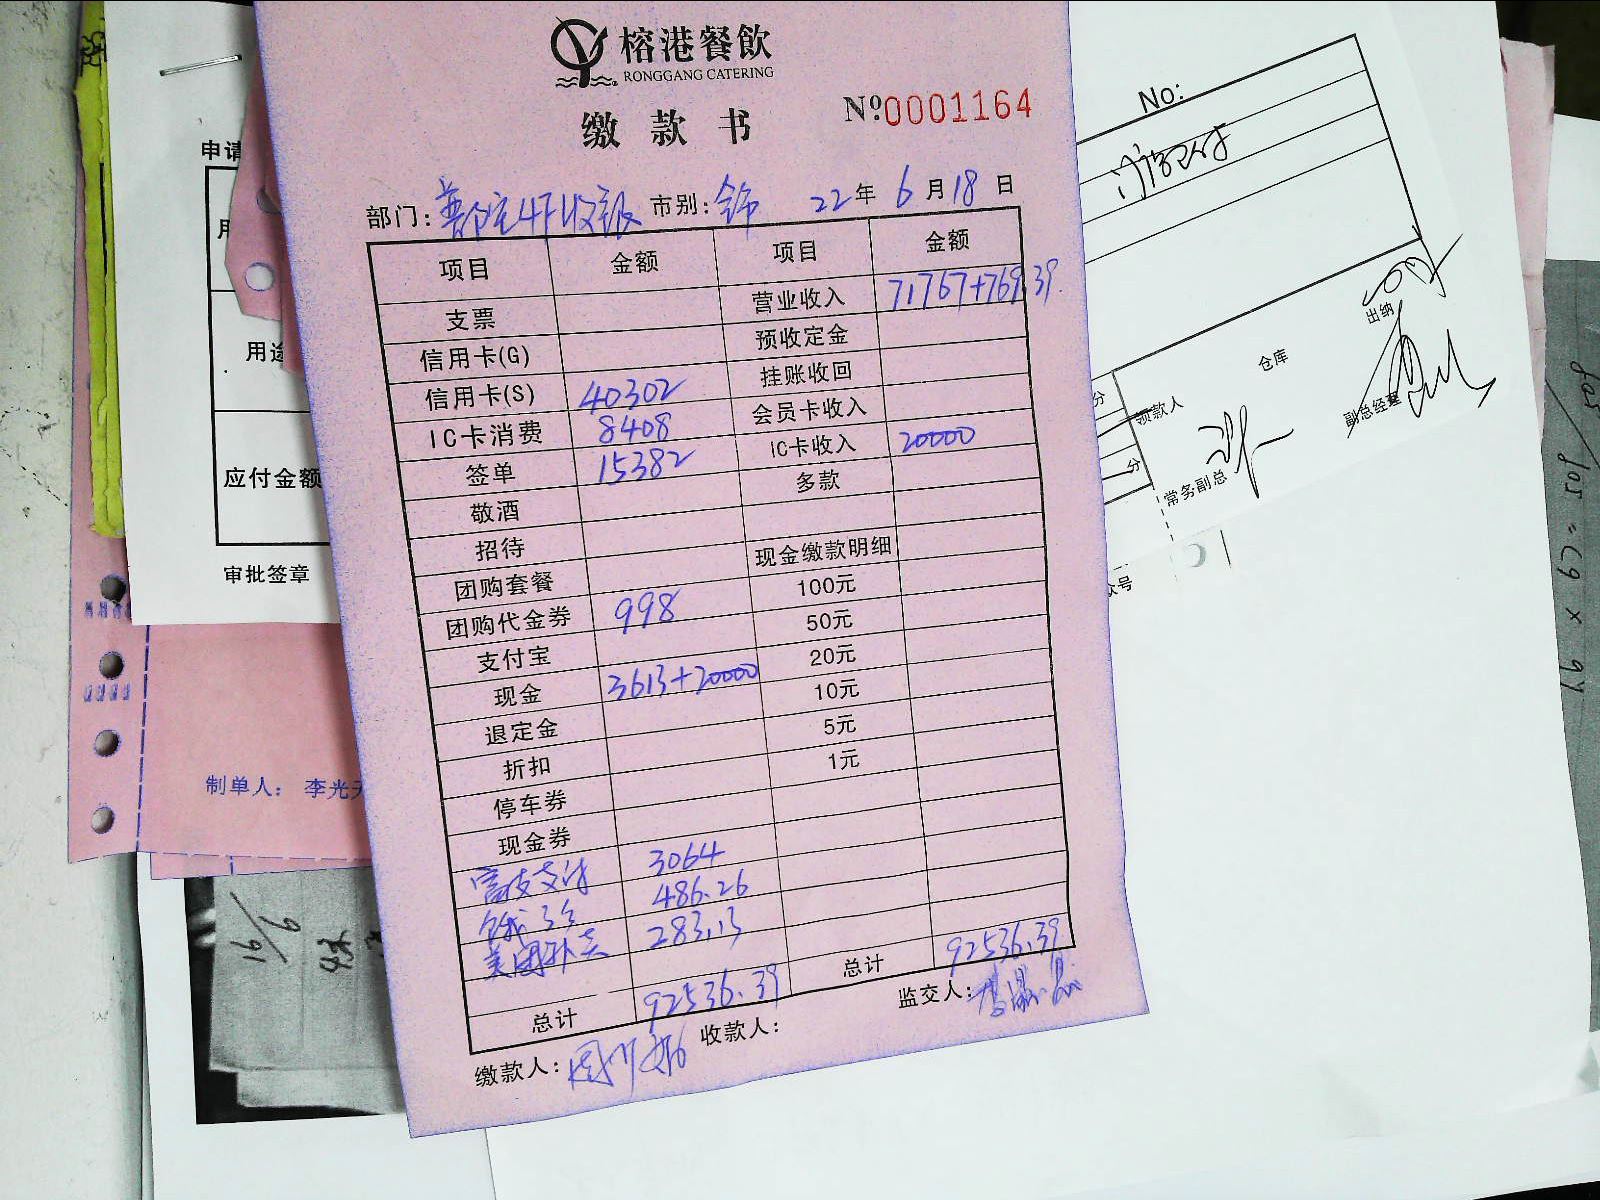 榕港餐飲
RONGGANG CATERING
缴款书
№0001164
部门: 市别:全市 22年6月18日
项目 金额 项目 金额
支票 营业收入 71767+769.39
信用卡(G) 预收定金
信用卡(S) 40302 挂账收回
IC卡消费 8408 会员卡收入
签单 15382 IC卡收入 20000
敬酒 多款
招待 现金缴款明细
团购套餐 100元
团购代金券 998 50元
支付宝 20元
现金 3613+20000 10元
退定金 5元
折扣 1元
停车券
现金券
支付 3064
486.26
美团外卖 283.13
总计 92536.39 总计 92536.39
缴款人: 收款人: 监交人:
申请
用途
应付金额
审批签章
制单人: 李光
No:
分
分
领款人
仓库
出纳
常务副总
副总经理
众号
16/6